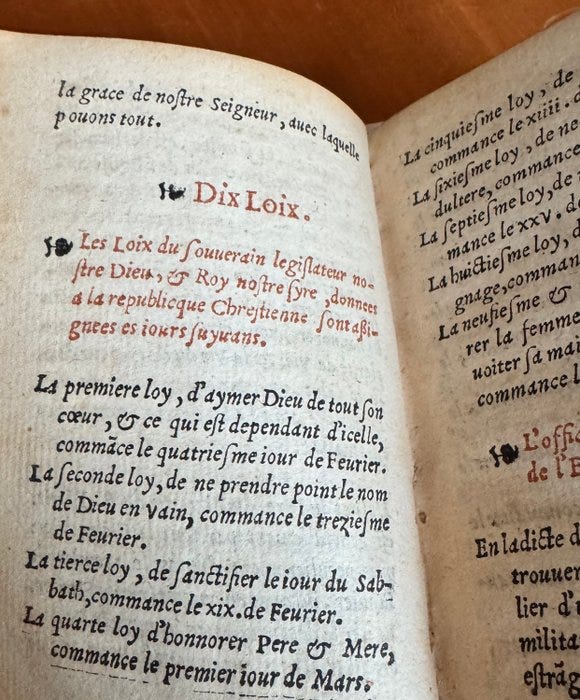 la grace de noſtre Seigneur, avec laquelle
pouons tout.
Dix Loix.
Les Loix du ſouuerain legiſlateur no-
ſtre Dieu, & Roy noſtre ſyre, donnees
a la republicque Chreſtienne ſont aßi-
gnees es iours ſuyuans.
La premiere loy, d'aymer Dieu de tout ſon
cœur, & ce qui eſt dependant d'icelle,
commãce le quatrieſme iour de Feurier.
La ſeconde loy, de ne prendre point le nom
de Dieu en vain, commance le trezieſme
de Feurier.
La tierce loy, de ſanctifier le iour du Sab-
bath, commance le xix. de Feurier.
La quarte loy d'honnorer Pere & Mere,
commance le premier iour de Mars.
La cinquieſme loy, de
commance le xiiii. d
La ſixieſme loy, de ne
dultere, commance
La ſeptieſme loy, de
mance le xxv. de
La huictieſme loy, d
gnage, comman
La neufieſme &
rer la femme
uoiter ſa mai
commance l
L'offic
de l'E
En ladicte d
trouuer
lier d'u
milita
eſtrãg